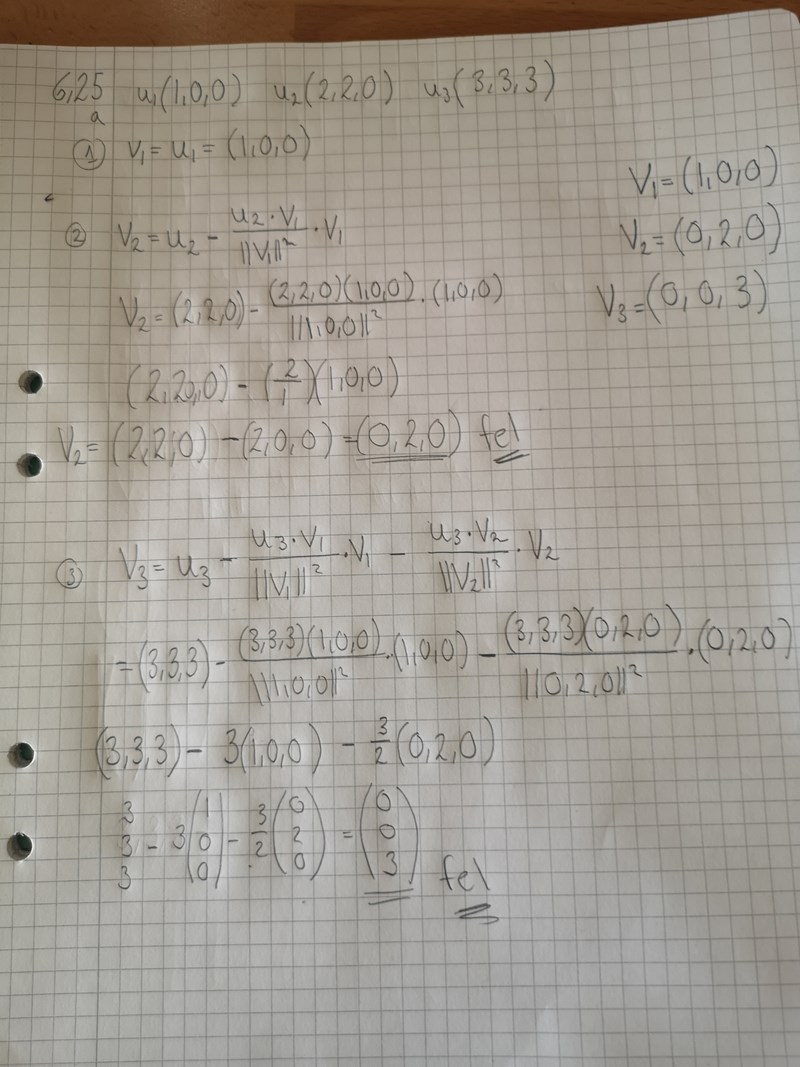 6,25 u₁(1,0,0) u₂(2,2,0) u₃(3,3,3)
a
① V₁ = u₁ = (1,0,0)
V₁ = (1,0,0)
V₂ = (0,2,0)
V₃ = (0,0,3)
② V₂ = u₂ - \frac{u₂·V₁}{||V₁||²}·V₁
V₂ = (2,2,0) - \frac{(2,2,0)(1,0,0)}{||1,0,0||²}·(1,0,0)
(2,2,0,0) - (\frac{2}{1})(1,0,0)
V₂ = (2,2,0) - (2,0,0) = (0,2,0) fel
③ V₃ = u₃ - \frac{u₃·V₁}{||V₁||²}·V₁ - \frac{u₃·V₂}{||V₂||²}·V₂
= (3,3,3) - \frac{(3,3,3)(1,0,0)}{||1,0,0||²}·(1,0,0) - \frac{(3,3,3)(0,2,0)}{||0,2,0||²}·(0,2,0)
(3,3,3) - 3(1,0,0) - \frac{3}{2}(0,2,0)
\begin{matrix}3\\3\\3\end{matrix} - 3\begin{pmatrix}1\\0\\0\end{pmatrix} - \frac{3}{2}\begin{pmatrix}0\\2\\0\end{pmatrix} = \begin{pmatrix}0\\0\\3\end{pmatrix} fel